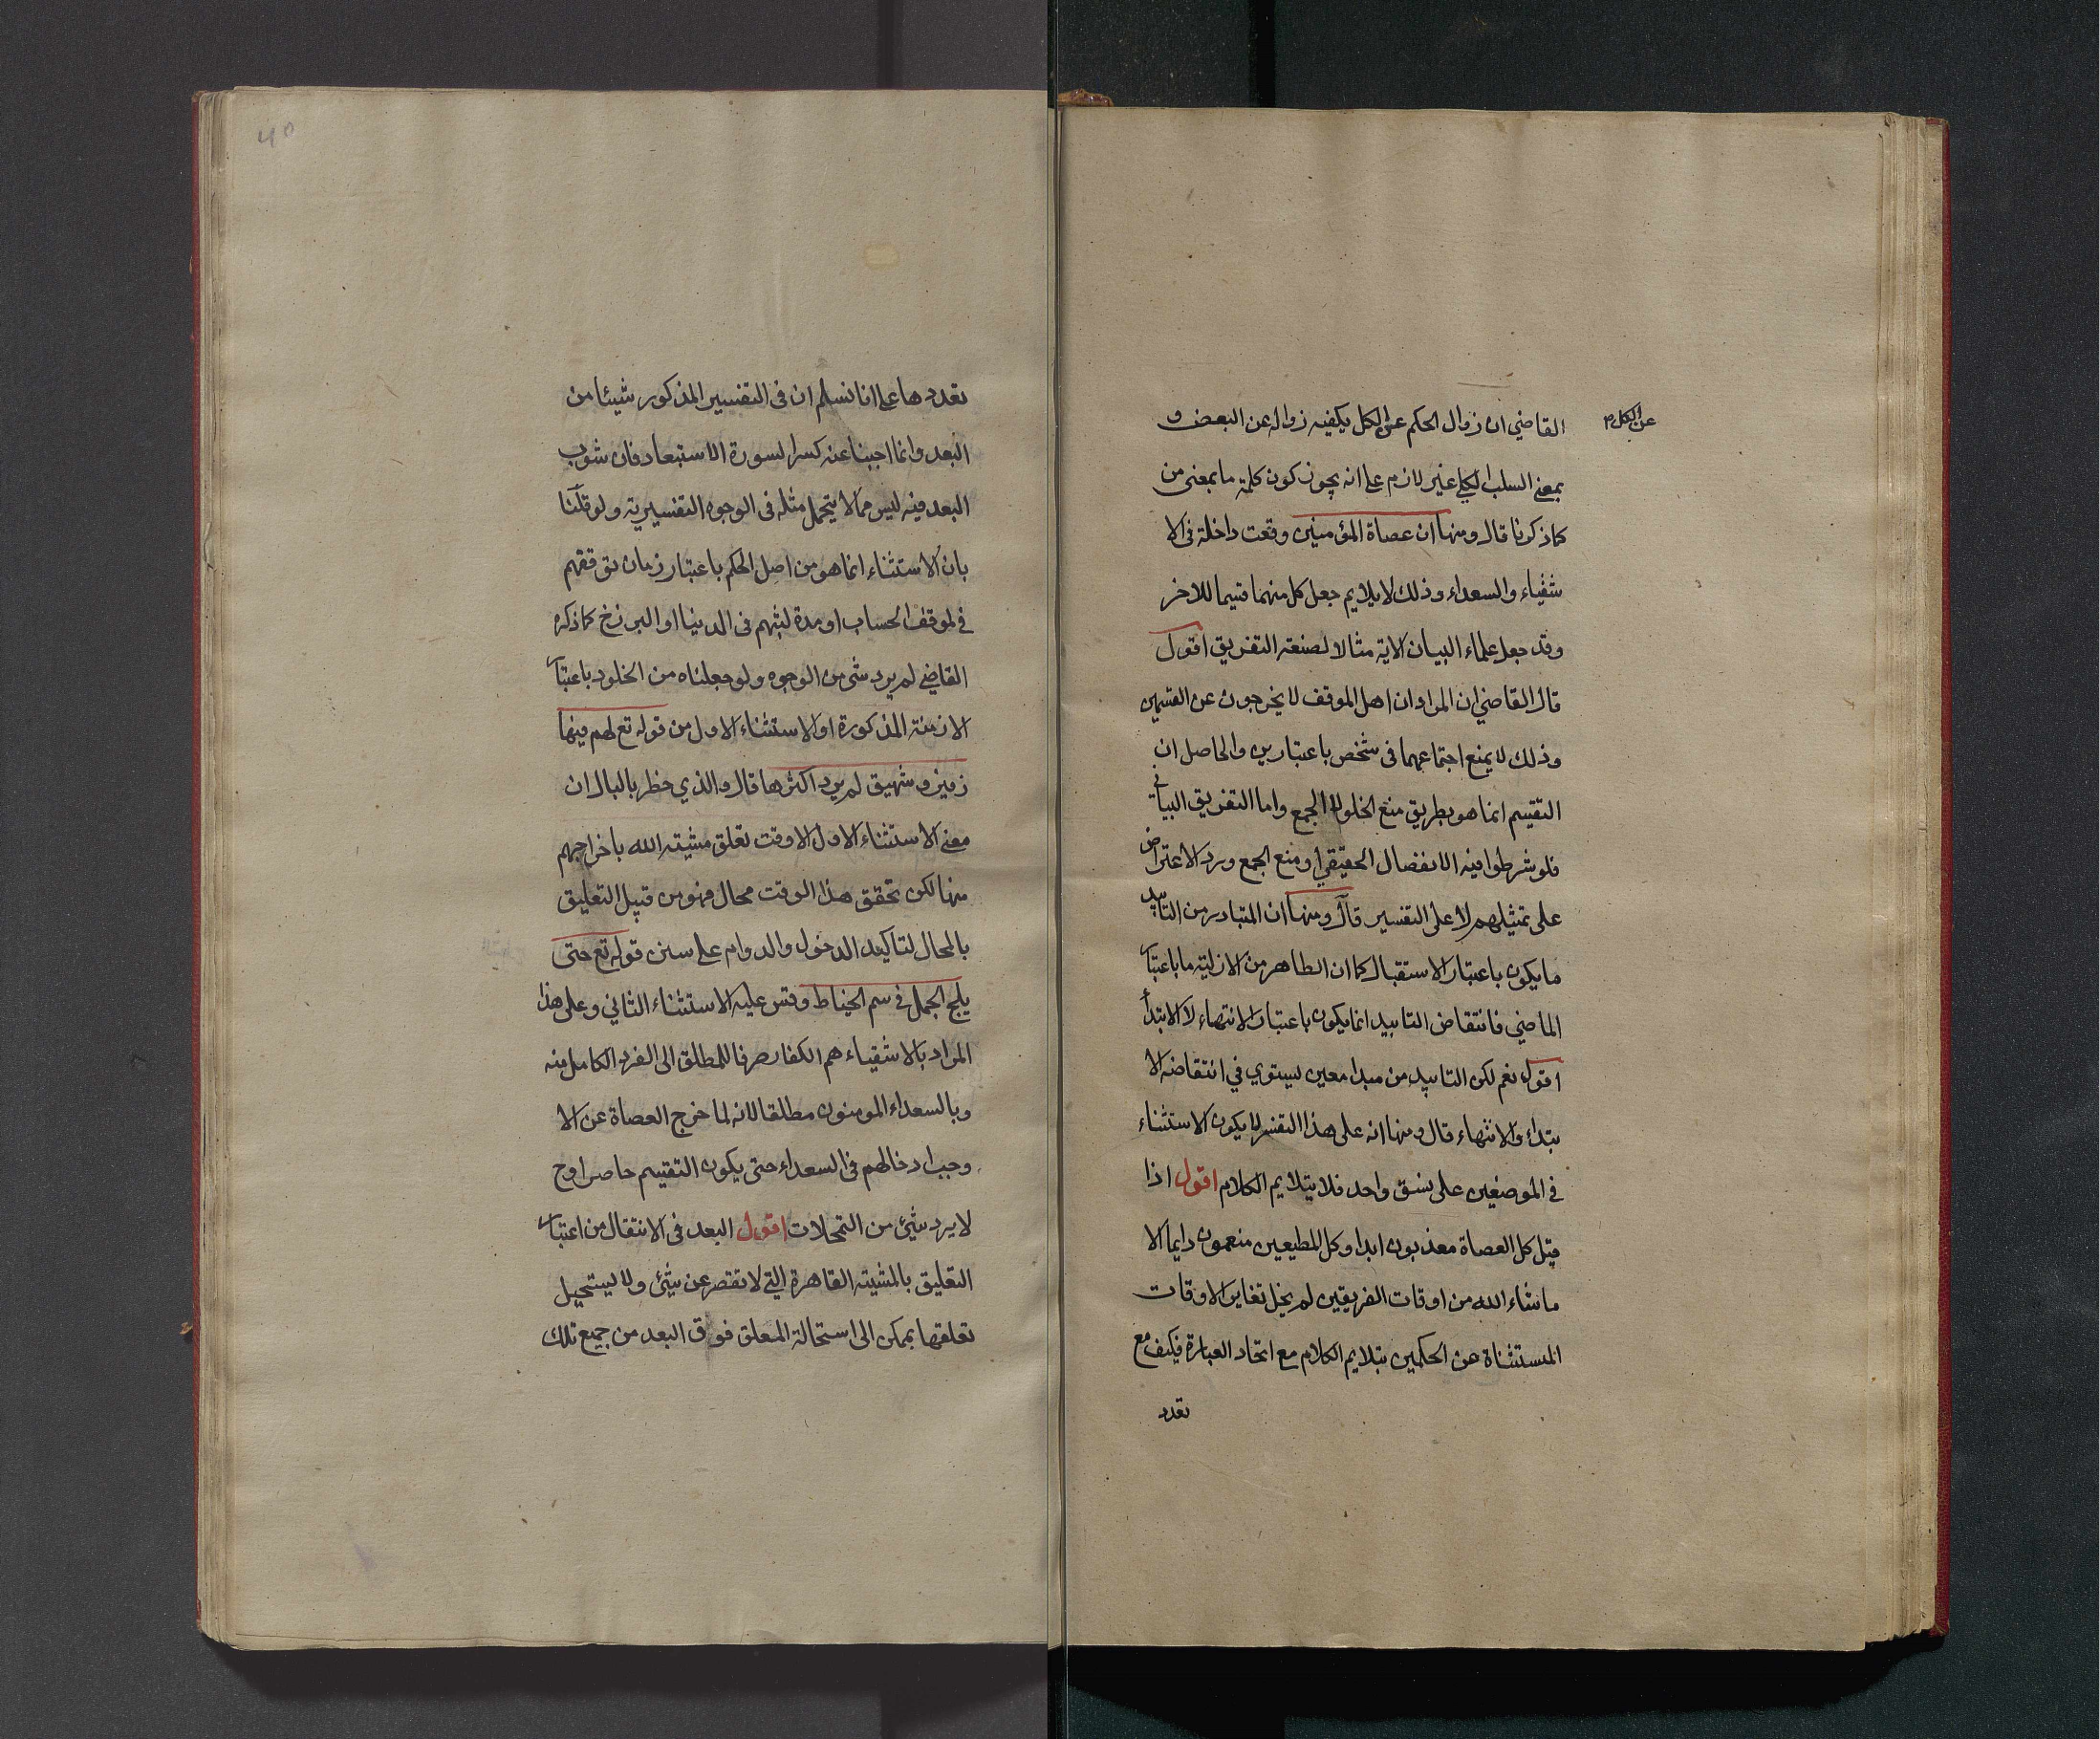 القاضي ان زوال الحكم عن الكل يكفيه زواله عن البعض و
عن الكل م
بمعنى السلب الكلي غير لازم على انه يجوز كون كلمة ما بمعنى من
كما ذكرنا قال ومنها ان عصاة المؤمنين وقعت داخلة في الا
شقياء والسعداء وذلك لا يلايم جعل كل منهما قسيما للاخر
وقد جعل علماء البيان الاية مثالا لصنعة التفريق اقول
قال القاضي ان المراد ان اهل الموقف لا يخرجون عن القسمين
وذلك لا يمنع اجتماعهما في شخص باعتبارين والحاصل ان
التقسيم انما هو بطريق منع الخلو لا الجمع واما التفريق البياني
فلو شرطوا فيه الانفصال الحقيقي او منع الجمع ورد الاعتراض
على تمثيلهم لا على التفسير قال ومنها ان المتبادر من التابيد
ما يكون باعتبار الاستقبال كما ان الظاهر من الازلية ما باعتبار
الماضي فانتقاض التابيد انما يكون باعتبار الانتهاء لا الابتدأ
اقول نعم لكن التابيد من مبدا معين يستوي في انتقاضه الا
بتداء والانتهاء قال ومنها انه على هذا التفسير لا يكون الاستثناء
في الموضعين على نسق واحد فلا يتلايم الكلام اقول اذا
قيل كل العصاة معذبون ابدا وكل المطيعين منعمون دايما الا
ما شاء الله من اوقات الفريقين لم يخل تغاير الاوقات
المستثناة عن الحكمين بتلايم الكلام مع اتحاد العبارة فكيف مع
تعدد
تعددها على انا نسلم ان في التفسير المذكور شيئا من
البعد وانما اجبنا عنه كسرا لسورة الاستبعاد فان شوب
البعد فيه ليس مما لا يتحمل مثله في الوجوه التفسيرية ولو قلنا
بان الاستثناء انما هو من اصل الحكم باعتبار زمان توقفهم
في لموقف الحساب او مدة لبثهم في الدنيا او البرزخ كما ذكره
القاضي لم يرد شى من الوجوه ولو جعلناه من الخلود باعتبار
الازمنة المذكورة او الاستثناء الاول من قوله تع لهم فيها
زفير وشهيق لم يرد اكثرها قال والذي خطر بالبال ان
معنى الاستثناء الاول الا وقت تعلق مشيته الله باخراجهم
منها لكن تحقق هذا الوقت محال فهو من قبيل التعليق
بالمحال لتاكيد الدخول والدوام على سنن قوله تع حتى
يلج الجمل في سم الخياط وقس عليه الاستثناء الثاني وعلى هذا
المراد بالاشقياء هم الكفار صرفا للمطلق الى الفرد الكامل منه
وبالسعداء المومنون مطلقا لانه لما خرج العصاة عن الا
وجب ادخالهم في السعداء حتى يكون التقسيم حاصرا وح
لا يرد شيئ من التمحلات اقول البعد في الانتقال من اعتبار
التعليق بالمشيته القاهرة التي لا تقصر عن شيئ ولا يستحيل
تعلقها بممكن الى استحالة المعلق فوق البعد من جميع تلك